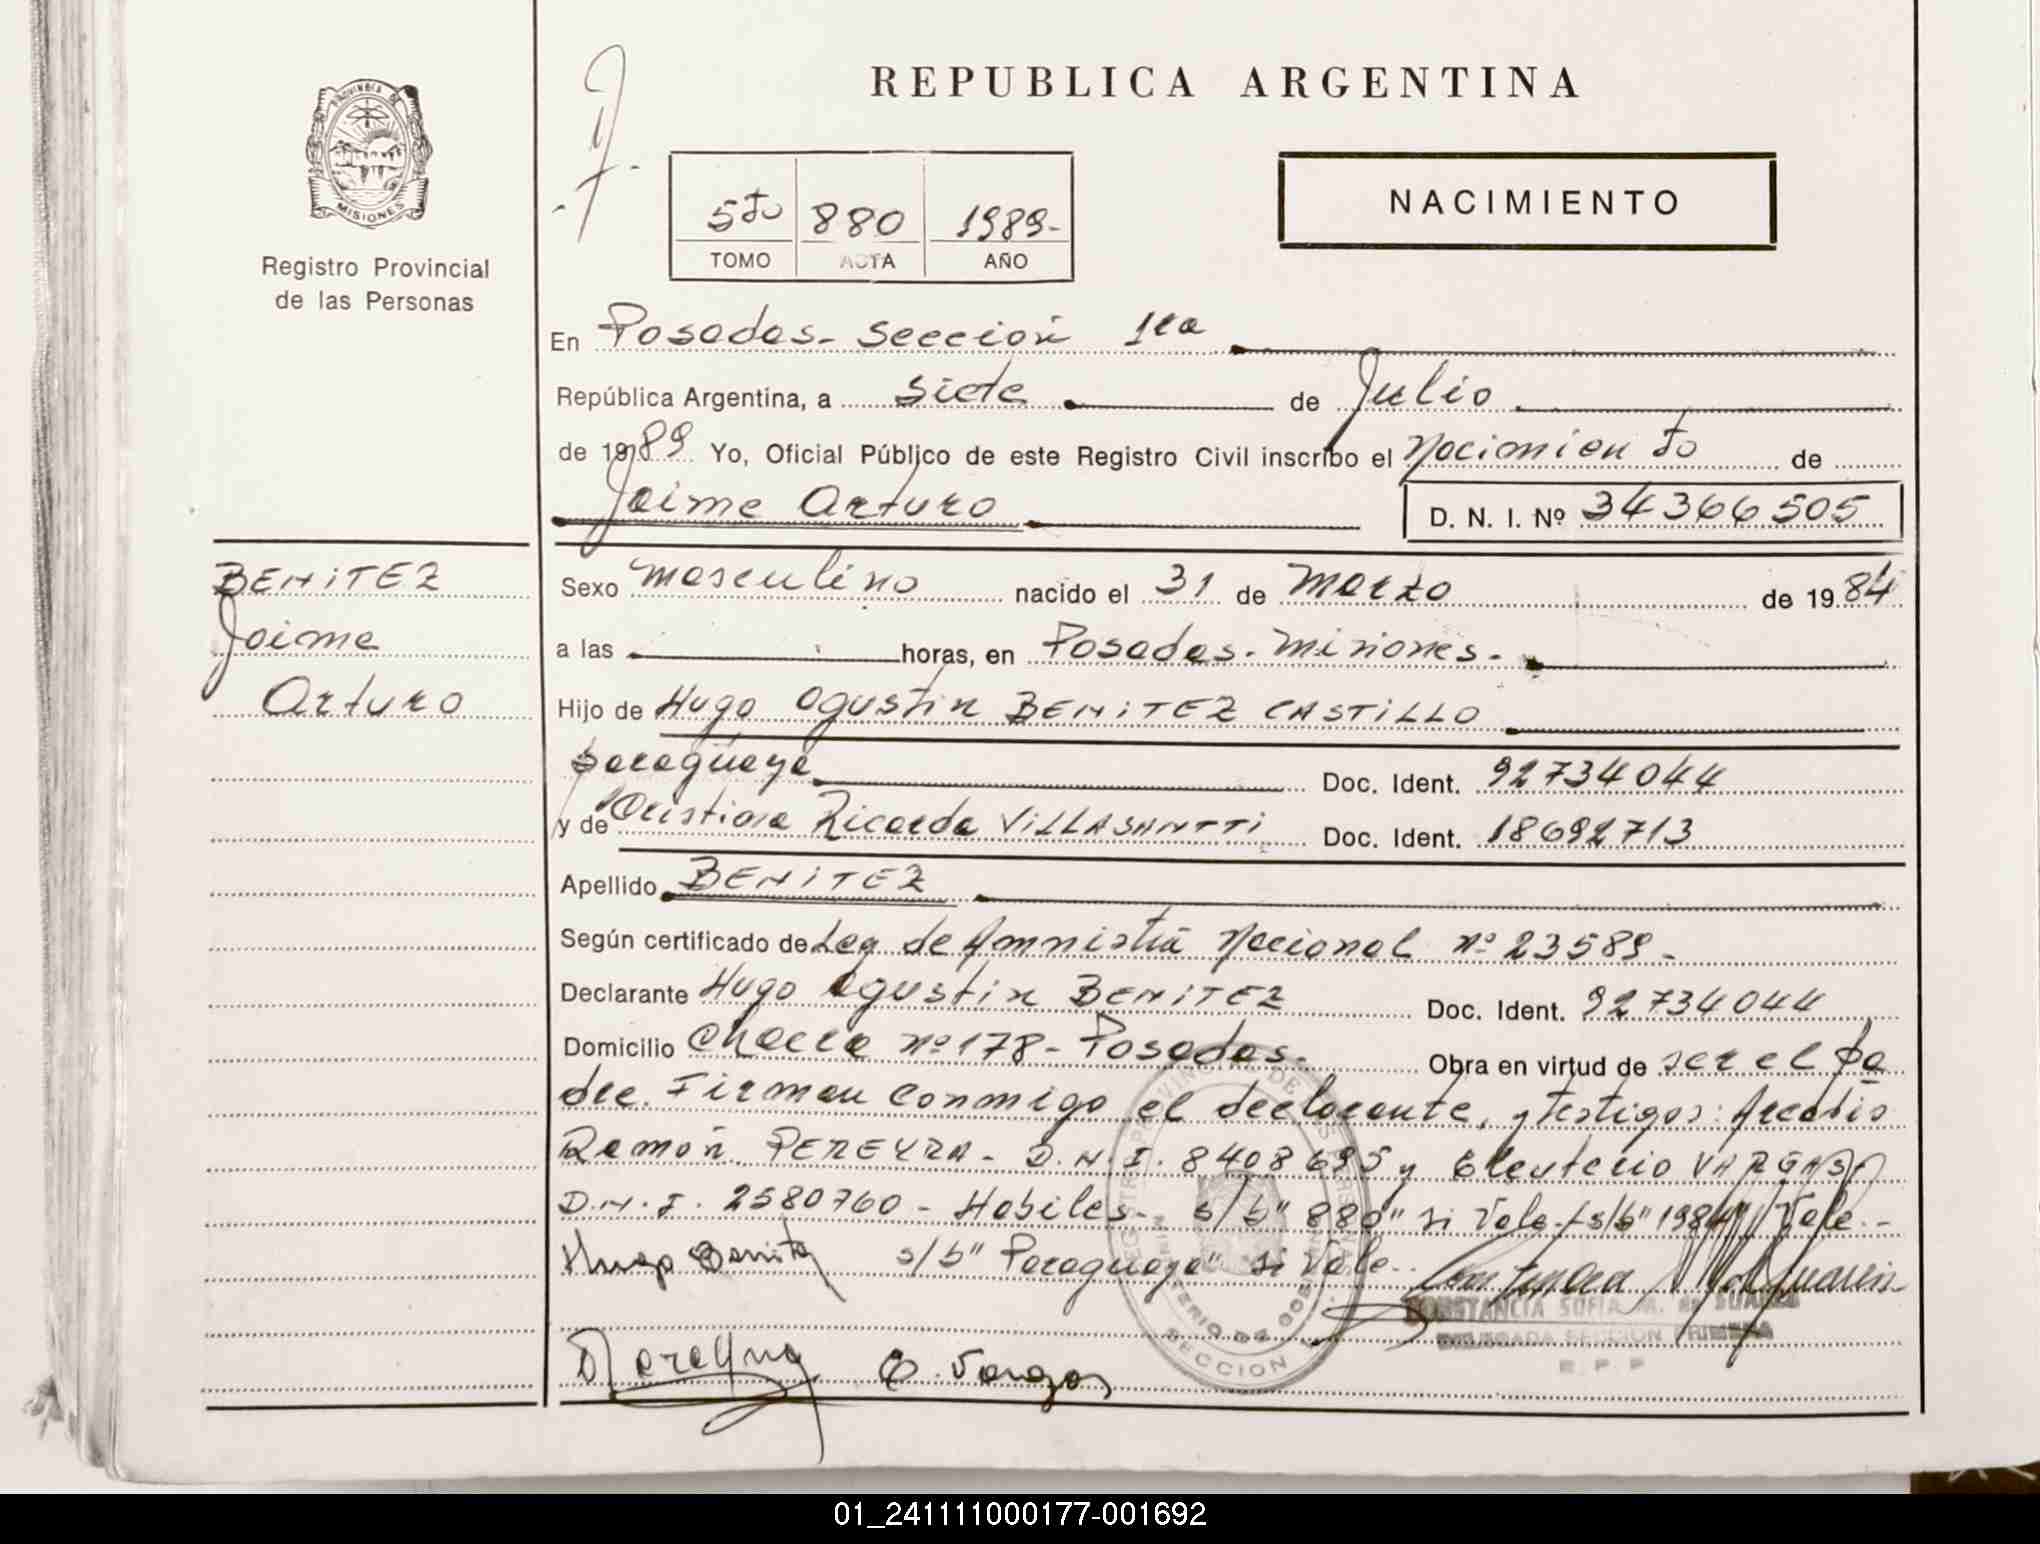 REPUBLICA ARGENTINA
PROVINCIA DE
MISIONES
Registro Provincial
de las Personas
5to 880 1989-
TOMO ACTA AÑO
NACIMIENTO
En Posadas- Sección 1ra
República Argentina, a siete de Julio
de 1989 Yo, Oficial Público de este Registro Civil inscribo el Nacimiento de
Jaime Arturo D. N. I. Nº 34366505
BENITEZ
Jaime
Arturo
Sexo masculino nacido el 31 de Marzo de 1984
a las horas, en Posadas. Misiones.
Hijo de Hugo Agustín BENITEZ CASTILLO
paraguaya Doc. Ident. 92734044
y de Cristina Ricarda VILLASANTTI Doc. Ident. 18692713
Apellido BENITEZ
Según certificado de Ley de Amnistía Nacional Nº 23589-
Declarante Hugo Agustín BENITEZ Doc. Ident. 92734044
Domicilio Chacra Nº 178- Posadas. Obra en virtud de ser el pa
dre. Firman conmigo el declarante, y testigos: Arcadio
Ramón PEREYRA- D.N.I. 8408695 y Eleuterio VARGAS
D.N.I. 2580760 - Hábiles- s/b "880" si Vale- s/b "1984" Vale.-
Hugo Benitez s/b "Paraguaya" si Vale.
CONSTANCIA SOFIA M. de SUAREZ
DELEGADA SECCION PRIMERA
R. P. P
Pereyra E. Vargas
SECCION
01_241111000177-001692